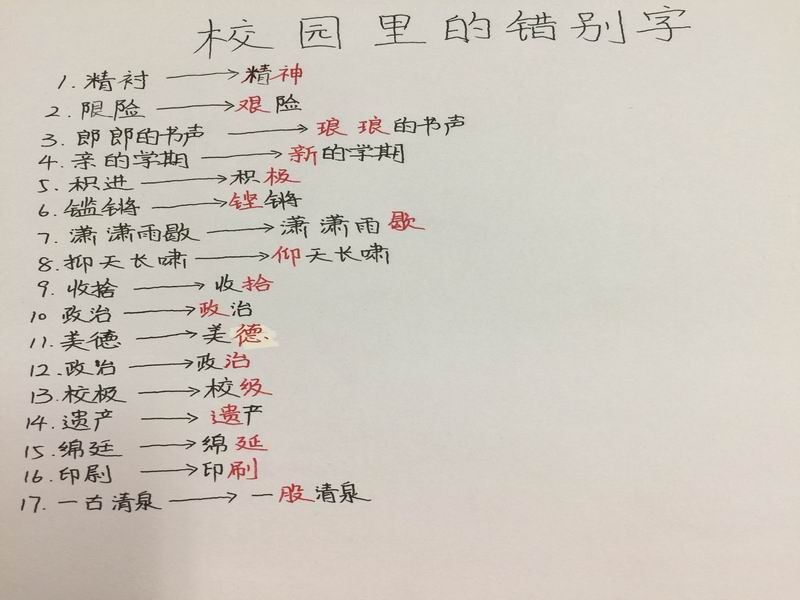 校园里的错别字
1. 精衬 → 精神
2. 限险 → 艰险
3. 郎郎的书声 → 琅琅的书声
4. 亲的学期 → 新的学期
5. 积进 → 积极
6. 锵 → 铿锵
7. 潇潇雨 → 潇潇雨歇
8. 抑天长啸 → 仰天长啸
9. 收捨 → 收拾
10 政治 → 政治
11. 美德 → 美德
12. 政治 → 政治
13. 校极 → 校级
14. 遗产 → 遗产
15. 绵廷 → 绵延
16. 印 → 印刷
17. 一古清泉 → 一股清泉